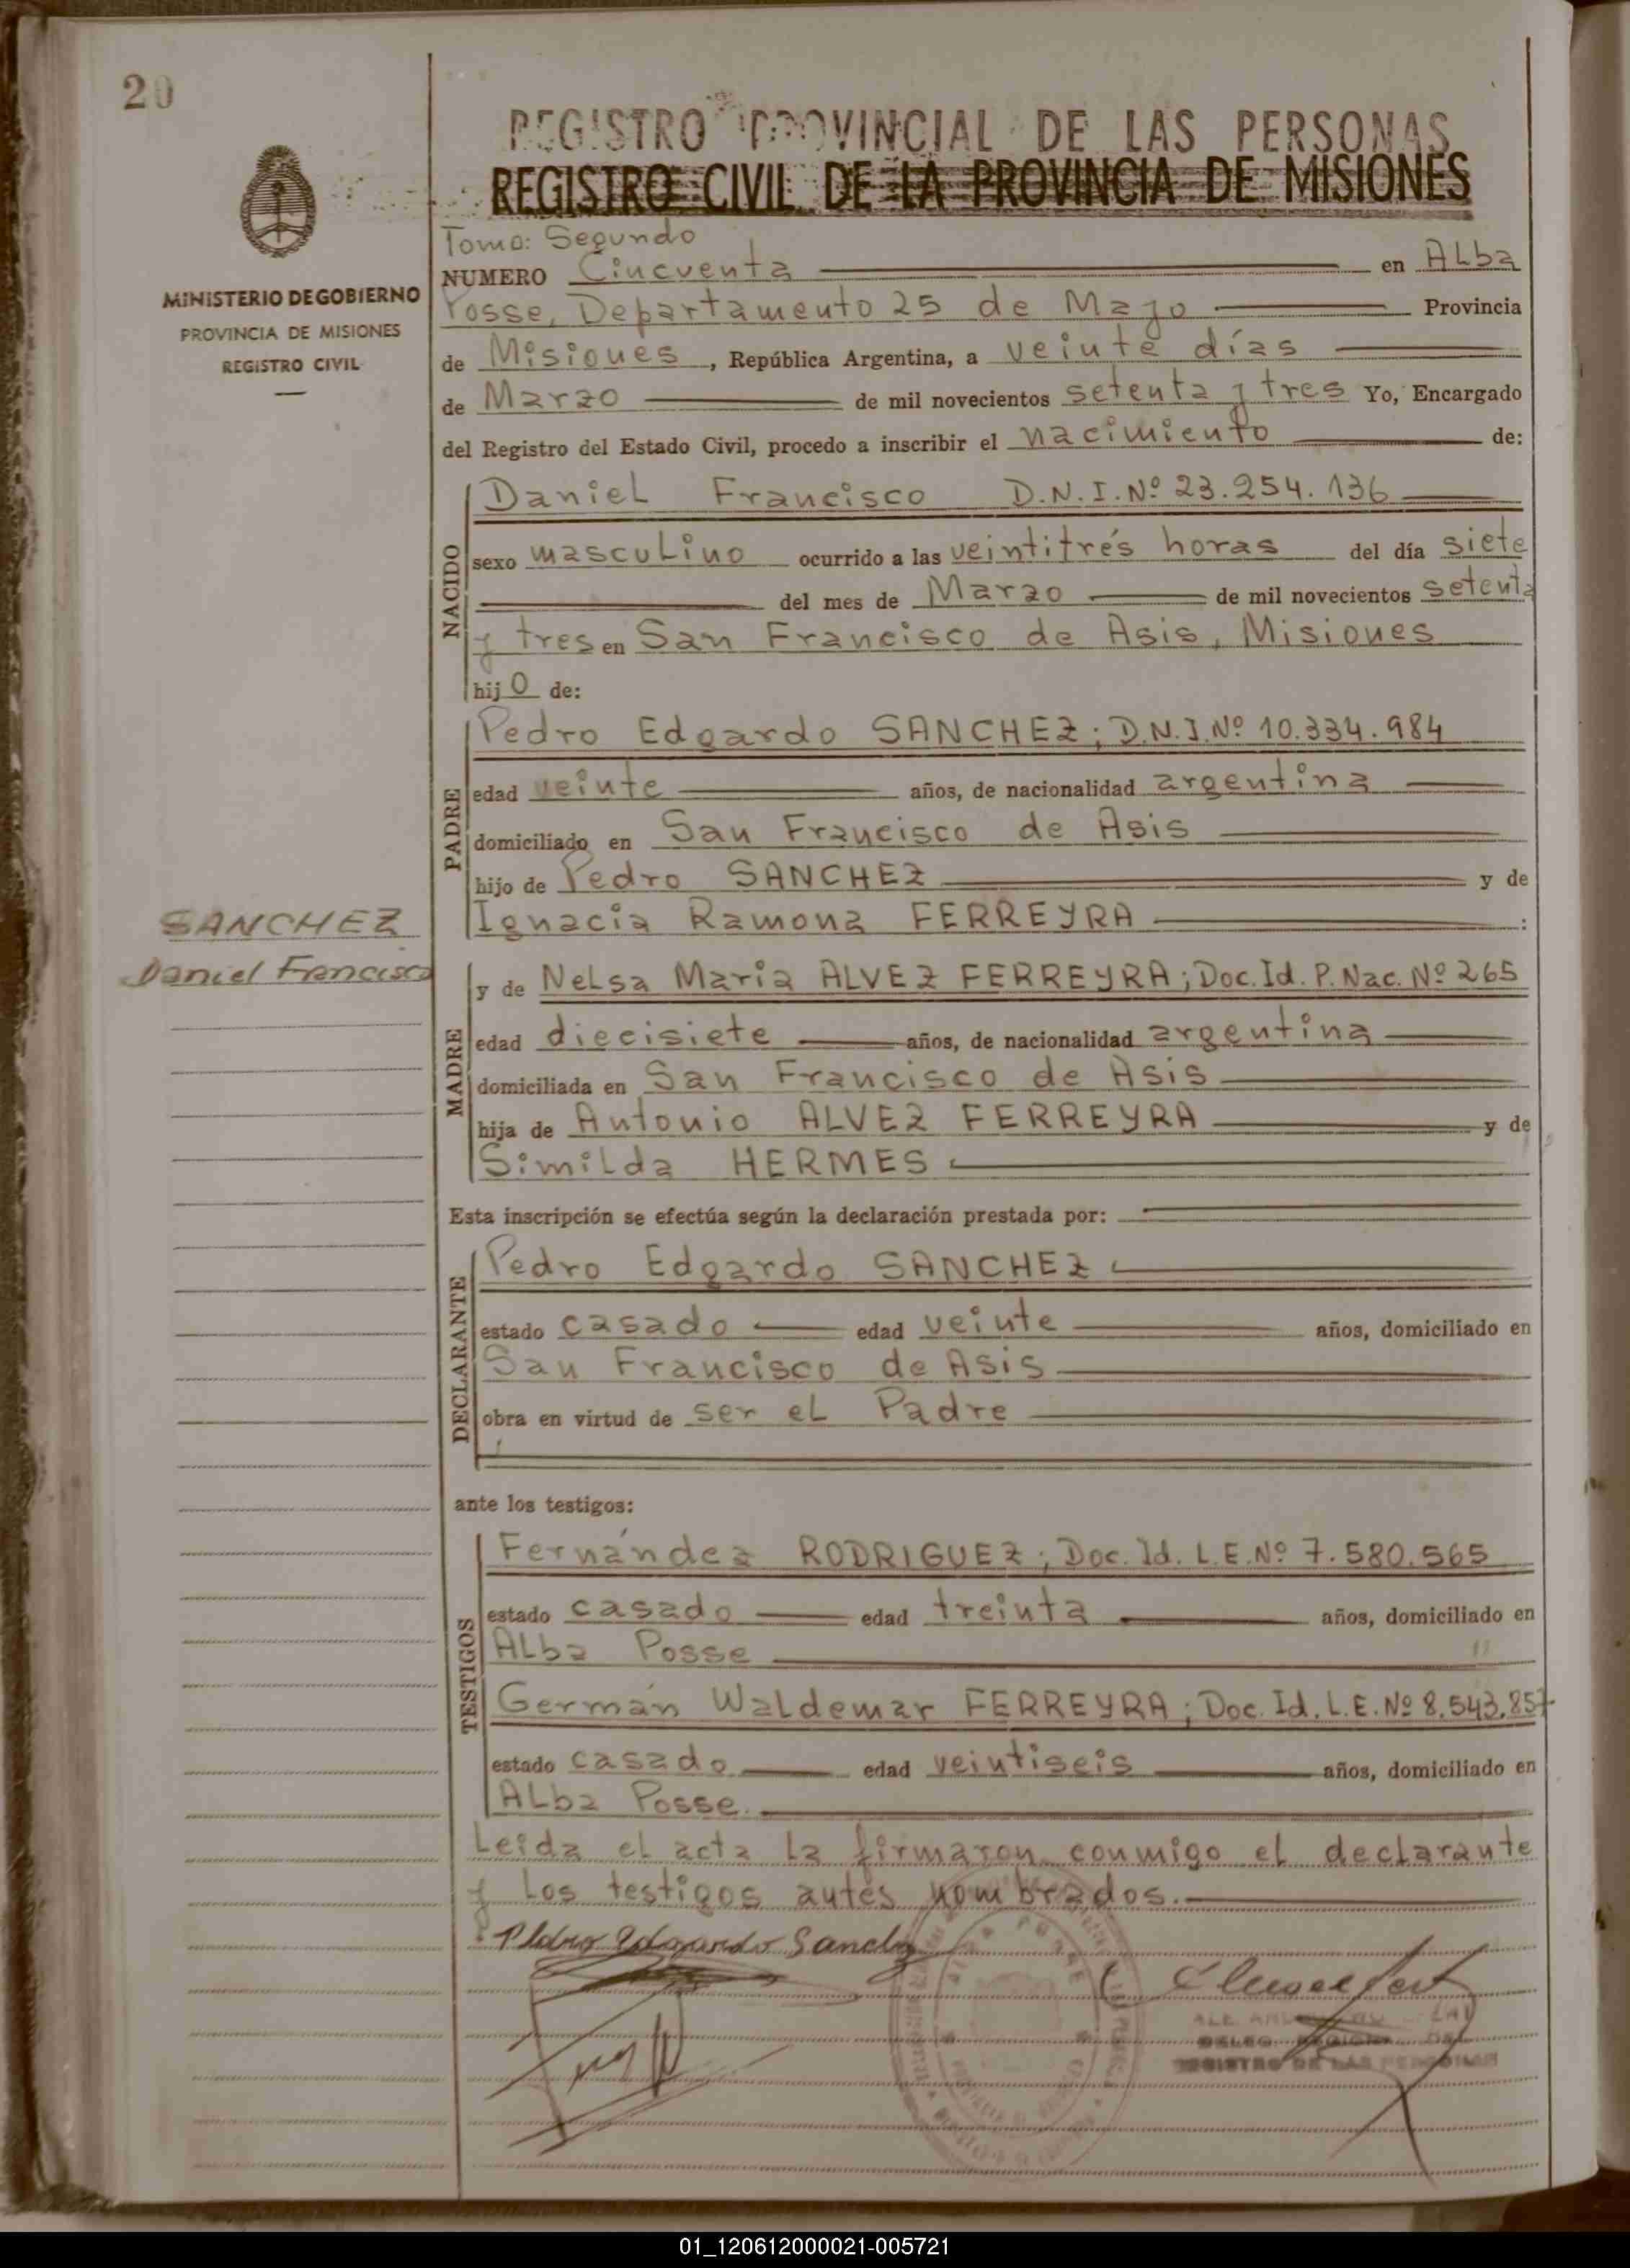 20
REGISTRO PROVINCIAL DE LAS PERSONAS
REGISTRO CIVIL DE LA PROVINCIA DE MISIONES
MINISTERIO DE GOBIERNO
PROVINCIA DE MISIONES
REGISTRO CIVIL
Tomo: Segundo
NUMERO Cincuenta en Alba
Posse, Departamento 25 de Mayo Provincia
de Misiones, República Argentina, a veinte días
de Marzo de mil novecientos setenta y tres Yo, Encargado
del Registro del Estado Civil, procedo a inscribir el nacimiento de:
NACIDO
Daniel Francisco D.N.I. Nº 23.254.136
sexo masculino ocurrido a las veintitrés horas del día siete
del mes de Marzo de mil novecientos setenta
y tres en San Francisco de Asis, Misiones
hijo de:
PADRE
Pedro Edgardo SANCHEZ; D.N.I. Nº 10.334.984
edad veinte años, de nacionalidad argentina
domiciliado en San Francisco de Asis
hijo de Pedro SANCHEZ y de
Ignacia Ramona FERREYRA :
SANCHEZ
Daniel Francisco
MADRE
y de Nelsa Maria ALVEZ FERREYRA; Doc. Id. P. Nac. Nº 265
edad diecisiete años, de nacionalidad argentina
domiciliada en San Francisco de Asis
hija de Antonio ALVEZ FERREYRA y de
Similda HERMES
Esta inscripción se efectúa según la declaración prestada por:
DECLARANTE
Pedro Edgardo SANCHEZ
estado casado edad veinte años, domiciliado en
San Francisco de Asis
obra en virtud de ser el Padre
ante los testigos:
TESTIGOS
Fernández RODRIGUEZ; Doc. Id. L.E. Nº 7.580.565
estado casado edad treinta años, domiciliado en
Alba Posse
Germán Waldemar FERREYRA; Doc. Id. L.E. Nº 8.543.857
estado casado edad veintiseis años, domiciliado en
Alba Posse.
Leida el acta la firmaron conmigo el declarante
y los testigos antes nombrados.
Pedro Edgardo Sanchez
REGISTRO DE LAS PERSONAS
01_120612000021-005721